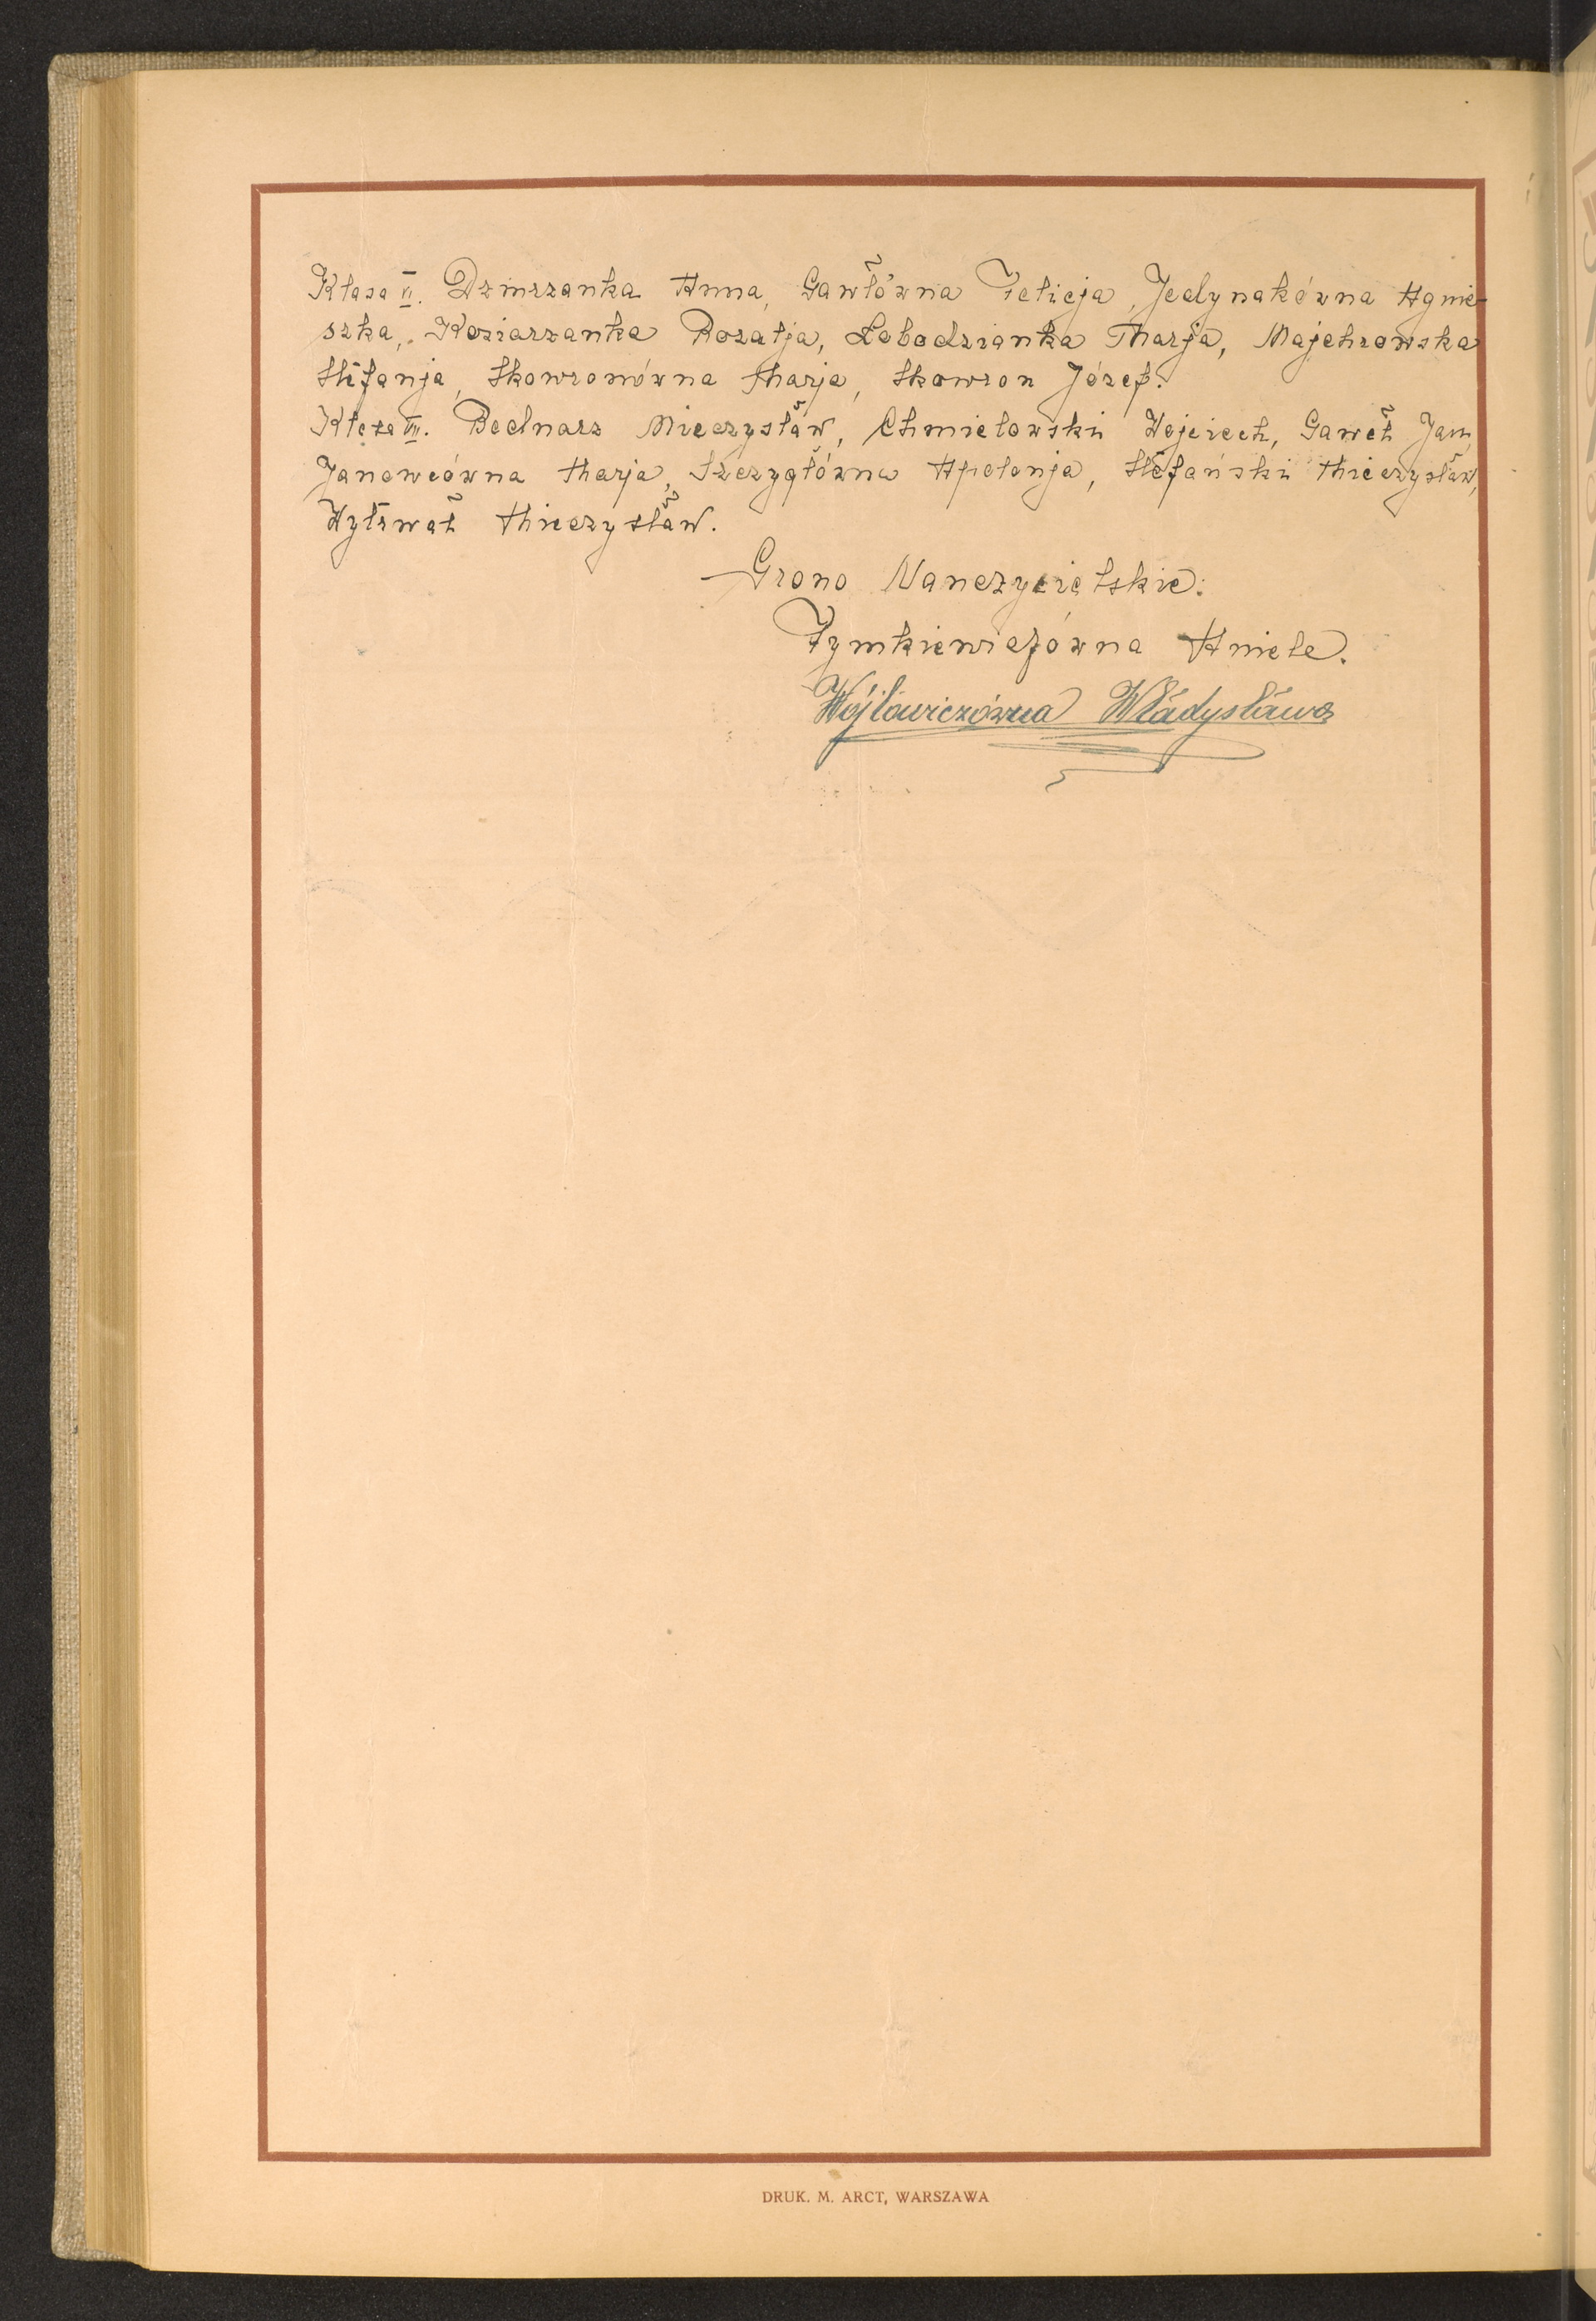 Klasa VI. Dziurzanka Anna, Gawłówna Felicja, Jedynakówna Agnie-
szka, Koziarzanka Rozalja, Łobodzianka Marja, Majchrowska
Stefanja, Skowronówna Marja, Skowron Józef.
Klasa VII. Bednarz Mieczysław, Chmielowski Wojciech, Gaweł Jan,
Janowcówna Marja, Szczygłówna Apolonja, Stefański Mieczysław,
Wytrwał Mieczysław.
Grono Nauczycielskie:
Tymkiewiczówna Aniela.
Wójtowiczówna Władysława
DRUK. M. ARCT, WARSZAWA